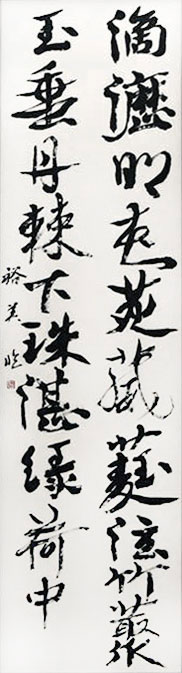 滴瀝明花苑葳蕤泫竹叢
玉垂丹棘下珠湛緑荷中